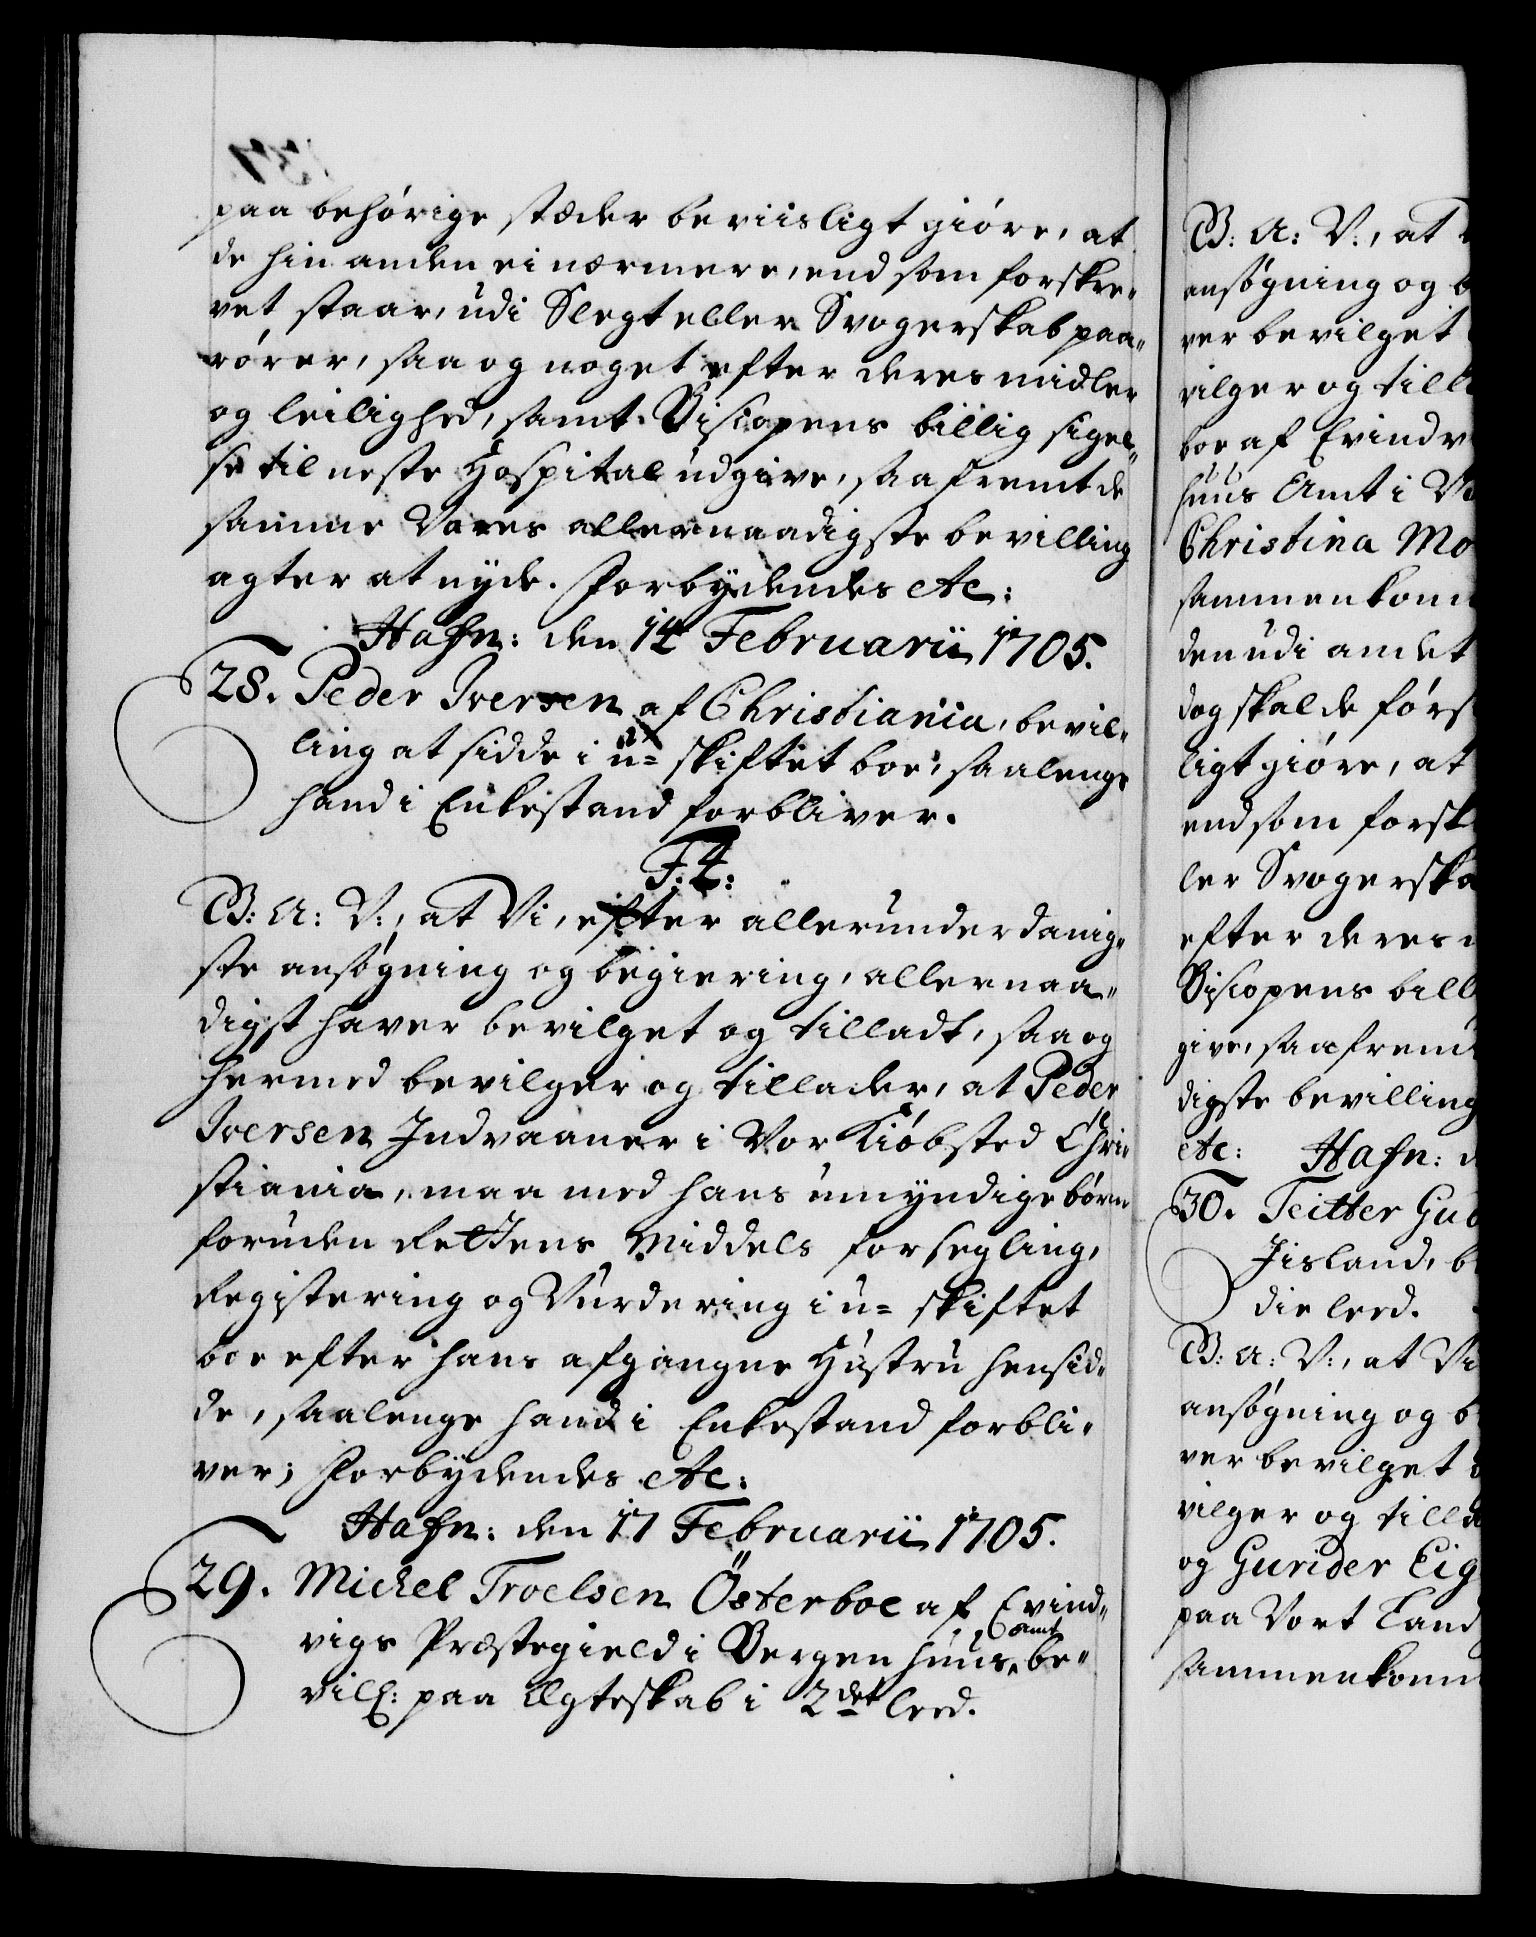 paa behørige stæder beviisligt giøre, at
de hin anden ei nærmere, end som forskre„
vet staar, udi Slegt eller Svogerskab paa„
rører, saa og noget efter deres midler
og leilighed, samt Biscopens billig sigel„
se til neste Hospital udgive, saafremt de
samme Vores allernaadigste bevilling
agter at nyde. Forbydendes etc:
Hafn: den 14 Februarii 1705.
28. Peder Iversen af Christiania, bevil„
ling at sidde i u= skiftet boe, saalenge
hand i Enkestand forbliver.
F. 4:
B: A: V:, at Vi, efter allerunderdanig„
ste ansøgning og begiering, allernaa„
digst haver bevilget og tilladt, saa og
hermed bevilger og tillader, at Peder
Iversen Indvaaner i Vor Kiøbsted Chri„
stiania, maa med hans umyndige børn
foruden Rettens Middels forsegling,
Registering og Vurdering i u= skiftet
boe efter hans afgangne Hustru hensid„
de, saalenge hand i Enkestand forbli„
ver; Forbydendes etc:
Hafn: den 17 Februarii 1705.
29. Michel Troelsen Österboe af Evind„
vigs Præstegield i Bergenhuus amt be„
vill: paa Egteskab i 2det leed.
B: A: V:, at
ansøgning og
ver bevilget
vilger og till
boe af Evindv
huus Amt i
Christina Mo
sammenkom
den udi andet
dog skal de førs
ligt giøre, at
end som forsk
ler Svogerska
efter deres
Biscopens bill
give, saafrem
digste bevilling
etc: Hafn:
30. Teitter Gu
Iisland, b
die leed.
B: A: V:, at Vi
ansøgning og b
ver bevilget
vilger og tilla
og Gurider Eig
paa Vort Land
sammenkom